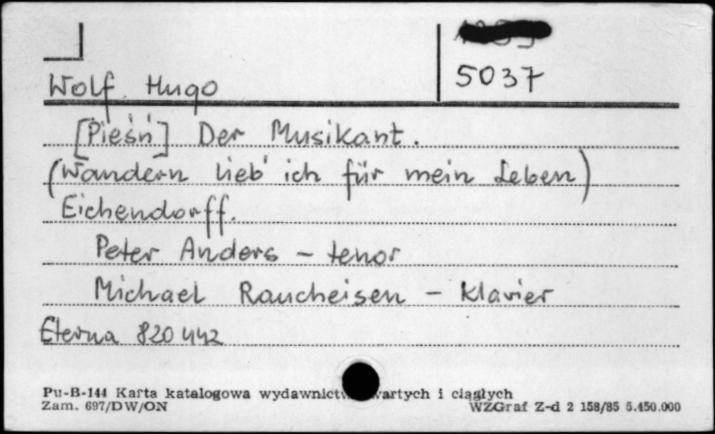 5037
Wolf Hugo
[Pieśń] Der Musikant.
(Wandern lieb' ich für mein Leben)
Eichendorff.
Peter Anders - tenor
Michael Raucheisen - Klavier
Eterna 820 442
Pu-B-144 Karta katalogowa wydawnictw zwartych i ciągłych
Zam. 697/DW/ON WZGraf Z-d 2 158/85 5.450.000